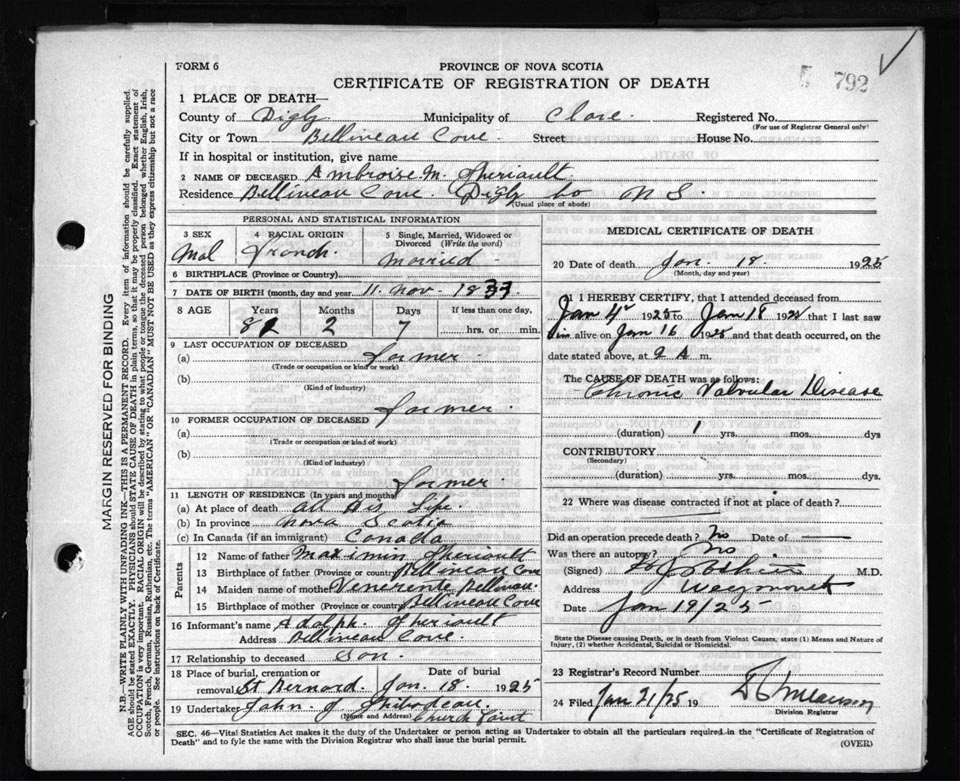 FORM 6
PROVINCE OF NOVA SCOTIA
CERTIFICATE OF REGISTRATION OF DEATH
792
1 PLACE OF DEATH—
County of Digby Municipality of Clare. Registered No.
(For use of Registrar General only)
City or Town Bellineau Cove. Street House No.
If in hospital or institution, give name
2 NAME OF DECEASED Ambroise M. Theriault
Residence Bellineau Cove. Digby Co N S.
(Usual place of abode)
PERSONAL AND STATISTICAL INFORMATION
3 SEX 4 RACIAL ORIGIN 5 Single, Married, Widowed or Divorced (Write the word)
Mal French. Married
6 BIRTHPLACE (Province or Country)
7 DATE OF BIRTH (month, day and year 11. Nov. 18
8 AGE Years Months Days If less than one day.
2 7 hrs. or min.
9 LAST OCCUPATION OF DECEASED
(a) Farmer.
(Trade or occupation or kind or work)
(b)
(Kind of industry)
Farmer.
10 FORMER OCCUPATION OF DECEASED
(a)
(Trade or occupation or kind of work)
(b)
(Kind of industry)
Farmer
11 LENGTH OF RESIDENCE (In years and months)
(a) At place of death all His Life.
(b) In province Nova Scotia
(c) In Canada (if an immigrant) Canada
Parents
12 Name of father Maximin Theriault
13 Birthplace of father (Province or country) Bellineau Cove
14 Maiden name of mother Bellineau.
15 Birthplace of mother (Province or country) Bellineau Cove
16 Informant's name Adolph. Theriault
Address Bellineau Cove.
17 Relationship to deceased Son.
18 Place of burial, cremation or removal St Bernard. Date of burial Jan. 18. 1925
19 Undertaker John. J. Thibodeau.
(Name and Address) Church Point
MEDICAL CERTIFICATE OF DEATH
20 Date of death Jan. 18. 1925
(Month, day and year)
21 I HEREBY CERTIFY, that I attended deceased from
Jan 4 1925 to Jan 18 192 that I last saw
him alive on Jan 16 1925 and that death occurred, on the
date stated above, at 2 A m.
The CAUSE OF DEATH was as follows:
Chronic Valvular Disease
(duration) 1 yrs. mos. dys
CONTRIBUTORY
(Secondary)
(duration) yrs. mos. dys.
22 Where was disease contracted if not at place of death?
Did an operation precede death? No Date of —
Was there an autopsy? No.
(Signed) M.D.
Address Weymouth
Date Jan 19/25
State the Disease causing Death, or in death from Violent Causes, state (1) Means and Nature of
Injury, (2) whether Accidental, Suicidal or Homicidal.
23 Registrar's Record Number
24 Filed Jan 21/25 19
Division Registrar
SEC. 46—Vital Statistics Act makes it the duty of the Undertaker or person acting as Undertaker to obtain all the particulars required in the "Certificate of Registration of
Death" and to fyle the same with the Division Registrar who shall issue the burial permit.
(OVER)
MARGIN RESERVED FOR BINDING
N.B.—WRITE PLAINLY WITH UNFADING INK—THIS IS A PERMANENT RECORD. Every item of information should be carefully supplied.
AGE should be stated EXACTLY. PHYSICIANS should STATE CAUSE OF DEATH in plain terms, so that it may be properly classified. Exact statement of
OCCUPATION is very important. RACIAL ORIGIN will be described by stating to what people or tongue the deceased person belonged whether English, Irish,
Scotch, French, German, Russian, Ruthenian, etc. The terms "AMERICAN" OR "CANADIAN" MUST NOT BE USED as they express citizenship but not a race
or people. See instructions on back of Certificate.